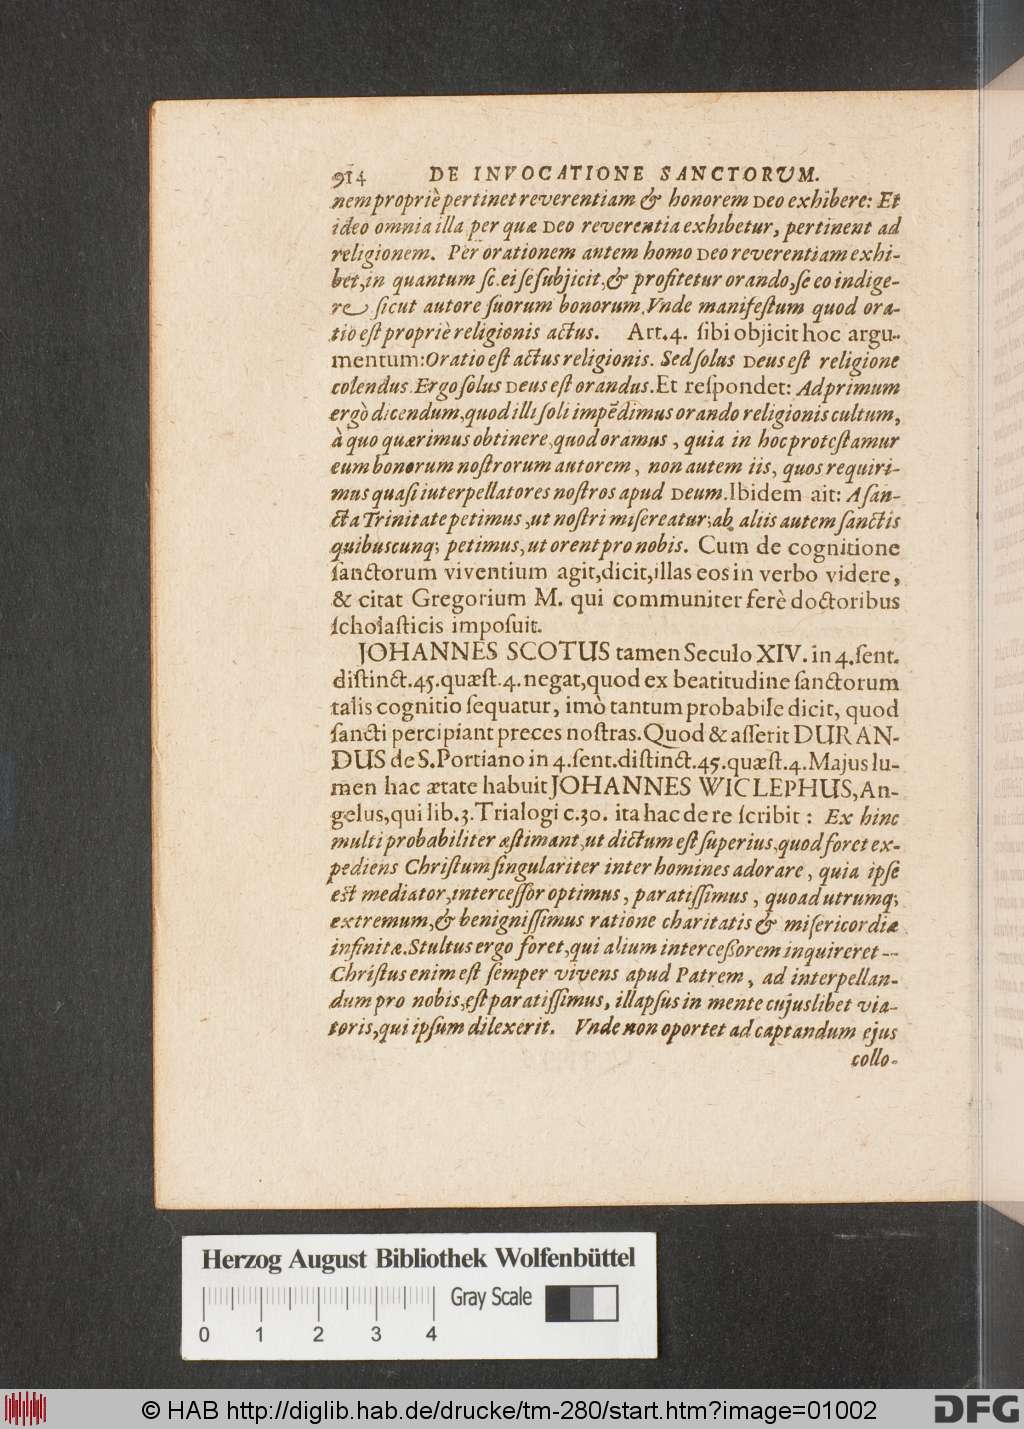 914 DE INVOCATIONE SANCTORUM.
nem propriè pertinet reverentiam & honorem Deo exhibere: Et
ideo omnia illa per quæ Deo reverentia exhibetur, pertinent ad
religionem. Per orationem autem homo Deo reverentiam exhi-
bet, in quantum ſc. ei ſe ſubjicit, & profitetur orando, ſe eo indige-
re ſicut autore ſuorum bonorum. Vnde manifeſtum quod ora-
tio eſt propriè religionis actus. Art. 4. ſibi objicit hoc argu-
mentum: Oratio eſt actus religionis. Sed ſolus Deus eſt religione
colendus. Ergo ſolus Deus eſt orandus. Et reſpondet: Ad primum
ergò dicendum, quod illi ſoli impēdimus orando religionis cultum,
à quo quærimus obtinere, quod oramus, quia in hoc proteſtamur
eum bonorum noſtrorum autorem, non autem iis, quos requiri-
mus quaſi iuterpellatores noſtros apud Deum. Ibidem ait: A ſan-
cta Trinitate petimus, ut noſtri miſereatur; ab aliis autem ſanctis
quibuscunq; petimus, ut orent pro nobis. Cum de cognitione
ſanctorum viventium agit, dicit, illas eos in verbo videre,
& citat Gregorium M. qui communiter ferè doctoribus
ſcholaſticis impoſuit.
JOHANNES SCOTUS tamen Seculo XIV. in 4. ſent.
diſtinct. 45. quæſt. 4. negat, quod ex beatitudine ſanctorum
talis cognitio ſequatur, imò tantum probabile dicit, quod
ſancti percipiant preces noſtras. Quod & aſſerit DURAN-
DUS de S. Portiano in 4. ſent. diſtinct. 45. quæſt. 4. Majus lu-
men hac ætate habuit JOHANNES WICLEPHUS, An-
gelus, qui lib. 3. Trialogi c. 30. ita hac de re ſcribit: Ex hinc
multi probabiliter æſtimant, ut dictum eſt ſuperius, quod foret ex-
pediens Chriſtum ſingulariter inter homines adorare, quia ipſe
eſt mediator, interceſſor optimus, paratiſſimus, quoad utrumq;
extremum, & benigniſſimus ratione charitatis & miſericordiæ
infinitæ. Stultus ergo foret, qui alium interceßorem inquireret --
Chriſtus enim eſt ſemper vivens apud Patrem, ad interpellan-
dum pro nobis, eſt paratiſſimus, illapſus in mente cujuslibet via-
toris, qui ipſum dilexerit. Vnde non oportet ad captandum ejus
collo-
Herzog August Bibliothek Wolfenbüttel
Gray Scale
0 1 2 3 4
© HAB http://diglib.hab.de/drucke/tm-280/start.htm?image=01002
DFG